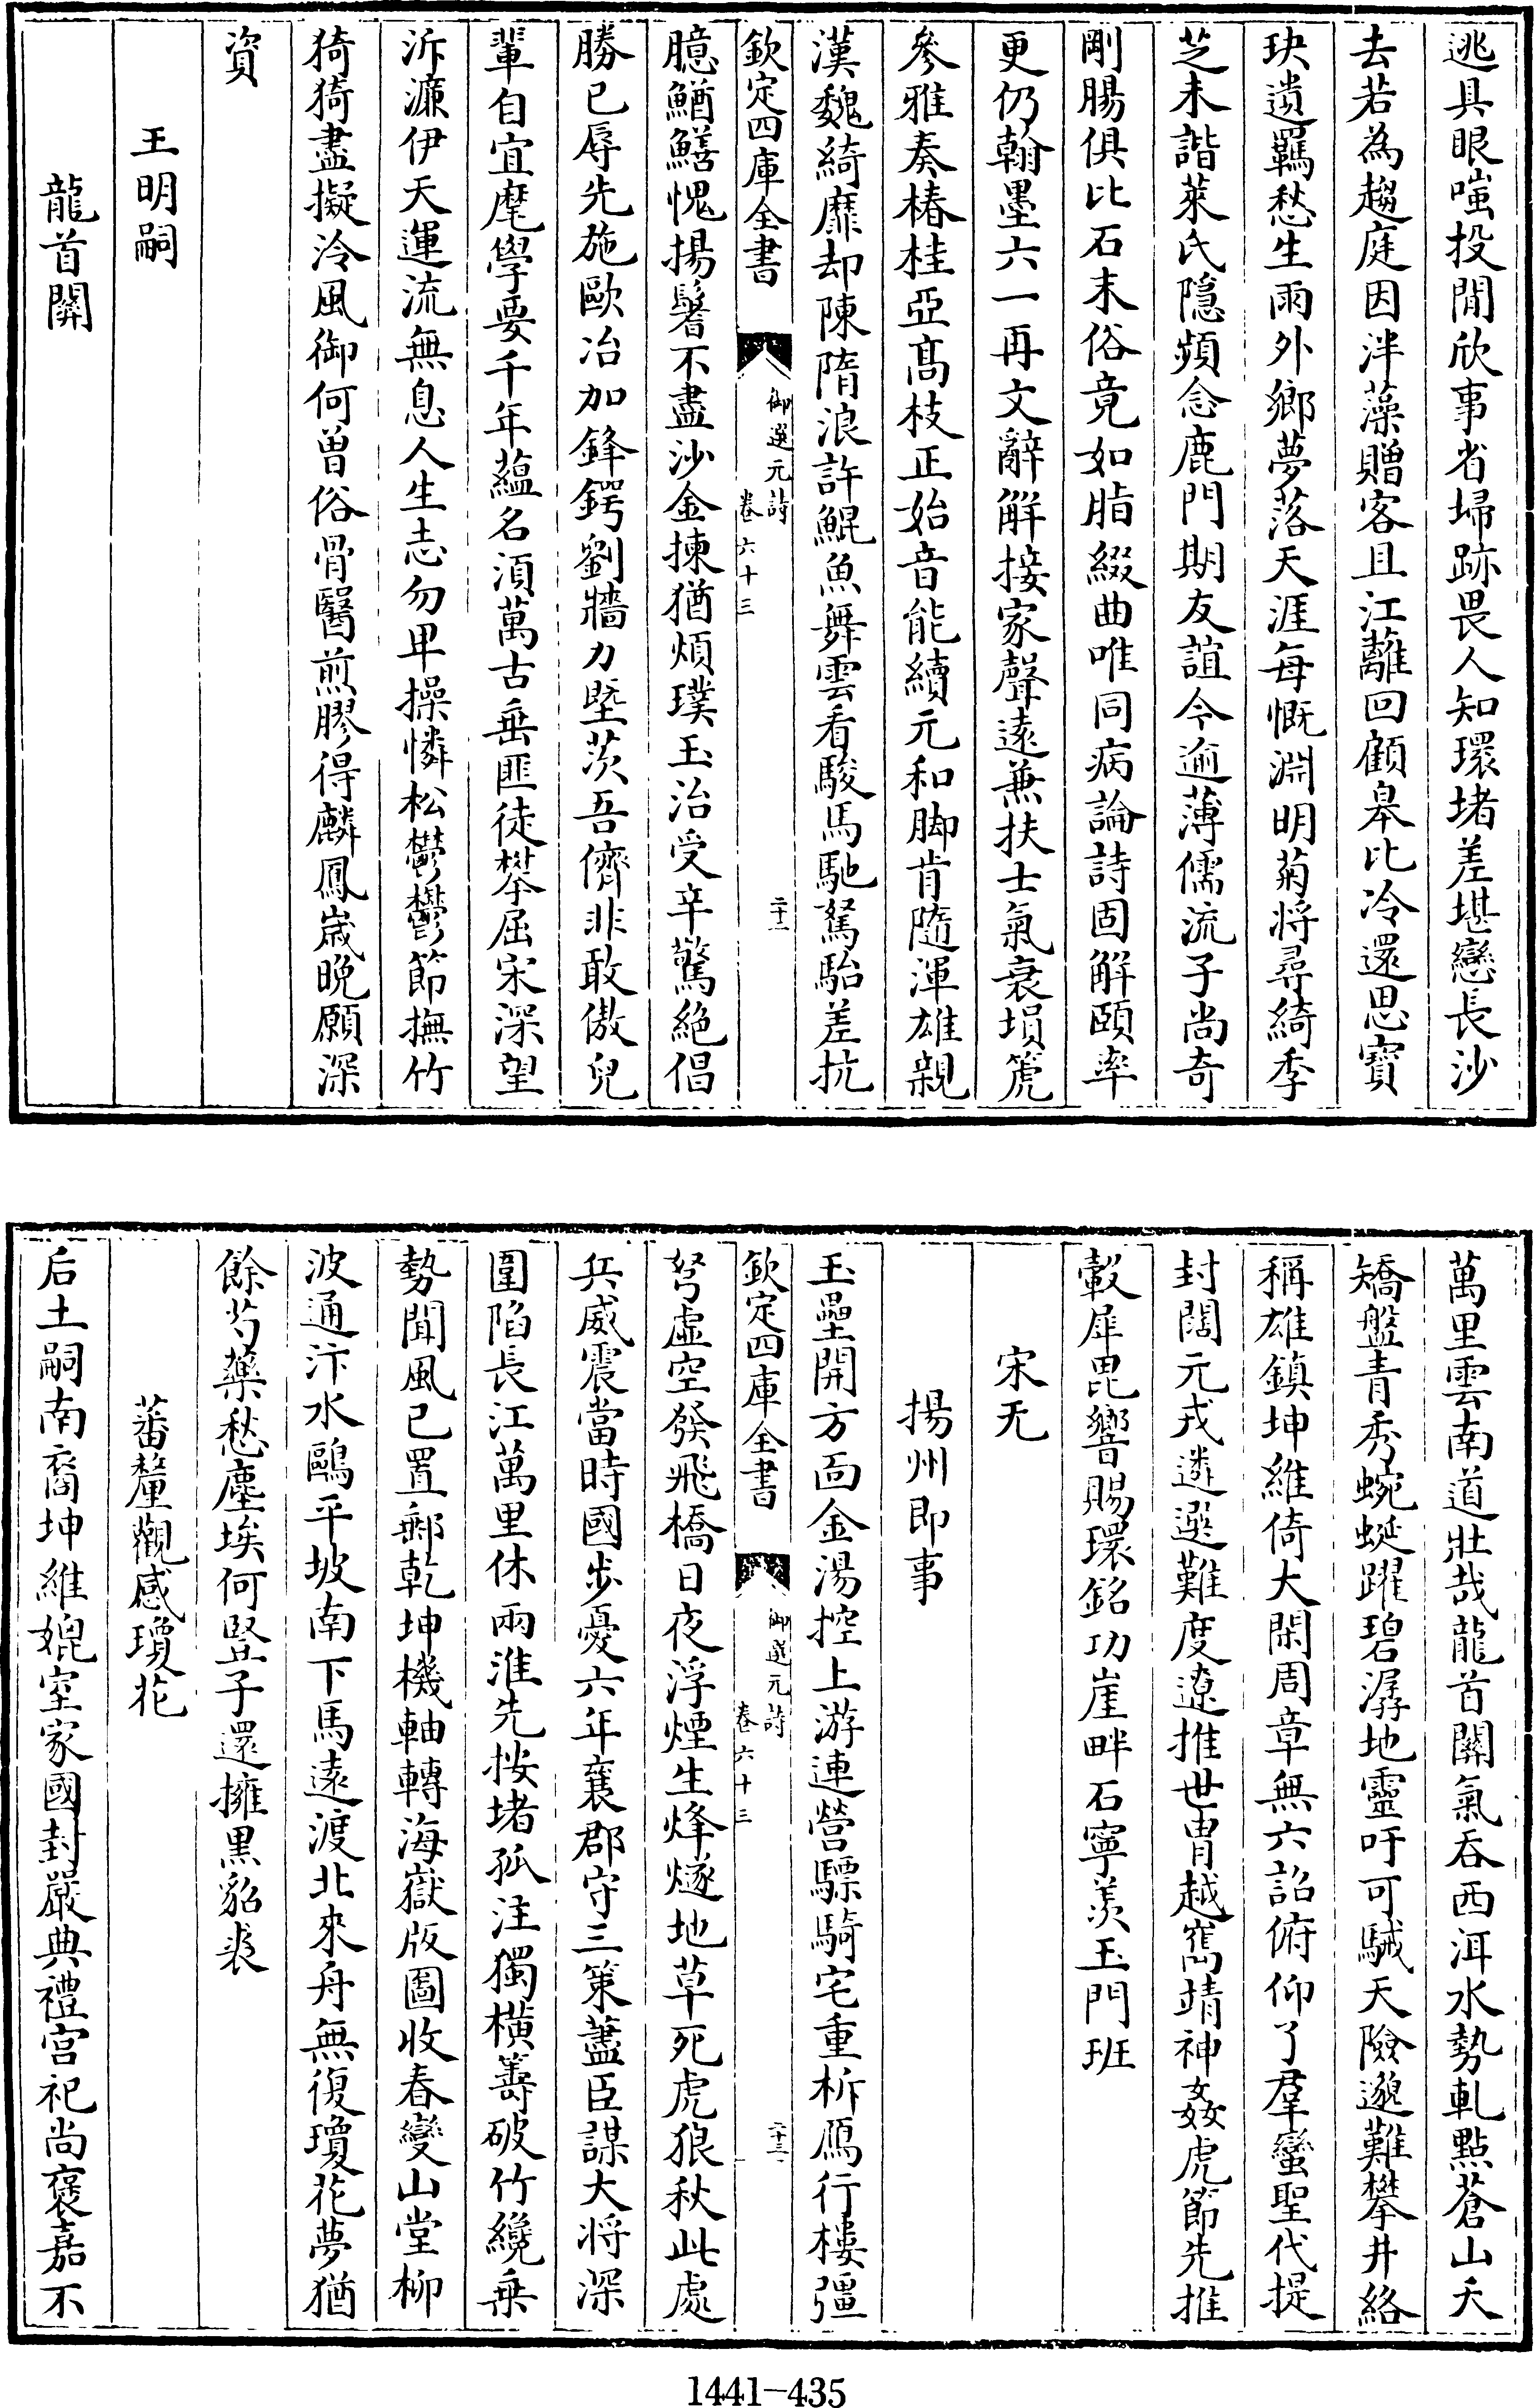 逃具眼嗤投閒欣事省埽跡畏人知環堵差堪戀長沙
去若為趨庭因泮藻贈客且江蘺回顧皋比冷還思寶
玦遺羈愁生雨外鄉夢落天涯每慨淵明菊將尋綺季
芝未諧萊氏隠頻念鹿門期友誼今逾薄儒流子尚奇
剛腸俱比石末俗竟如脂綴曲唯同病論詩固解頤率
更仍翰墨六一再文辭觧接家聲遠兼扶士氣衰塤箎
參雅奏椿桂亞髙枝正始音能續元和脚肯隨渾雄親
漢魏綺靡却陳隋浪許鯤魚舞雲看駿馬馳駑駘差抗
欽定四庫全書
御選元詩
卷六十三
二十一
臆鰌鱔愧揚鬐不盡沙金揀猶煩璞玉治受辛驚絶倡
勝已辱先施歐冶加鋒鍔劉牆力塈茨吾儕非敢傲兒
輩自宜麾學要千年蘊名須萬古垂匪徒攀屈宋深望
泝濂伊天運流無息人生志勿卑操憐松鬱鬱節撫竹
猗猗盡擬泠風御何曽俗骨醫煎膠得麟鳳歲晚願深
資
王明嗣
龍首關
萬里雲南道壯哉龍首關氣吞西洱水勢軋點蒼山夭
矯盤青秀蜿蜒躍碧潺地靈吁可駴天險邈難攀井絡
稱雄鎮坤維倚大閑周章無六詔俯仰了羣蠻聖代提
封闊元戎遴選難度遼推世胄越嶲靖神姦虎節先推
轂犀毘響賜環銘功崖畔石寧羨玉門班
宋无
揚州即事
玉壘開方面金湯控上游連營驃騎宅重柝鴈行樓彊
欽定四庫全書
御選元詩
卷六十三
二十二
弩虛空發飛橋日夜浮煙生烽燧地草死虎狼秋此處
兵威震當時國步憂六年襄郡守三策藎臣謀大將深
圍陷長江萬里休兩淮先按堵孤注獨橫籌破竹纔乗
勢聞風已置郵乾坤機軸轉海嶽版圖收春變山堂柳
波通汴水鷗平坡南下馬遠渡北來舟無復瓊花夢猶
餘芍藥愁塵埃何豎子還擁黒貂裘
蕃釐觀感瓊花
后土嗣南裔坤維媲室家國封嚴典禮宫祀尚褒嘉不
1441-435